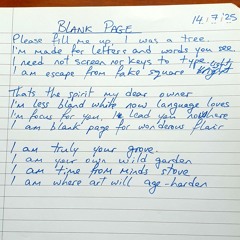 BLANK PAGE
14.7.'25
Please fill me up, I was a tree.
I'm made for letters and words you see
I need not screen nor keys to type
I am escape from fake square light
Thats the spirit my dear owner
I'm less bland white now language loves
I'm focus for you, I lead you nowhere
I am blank page for wonderous flair
I am truly your grove.
I am your own wild garden
I am time from minds stove
I am where art will age-harden